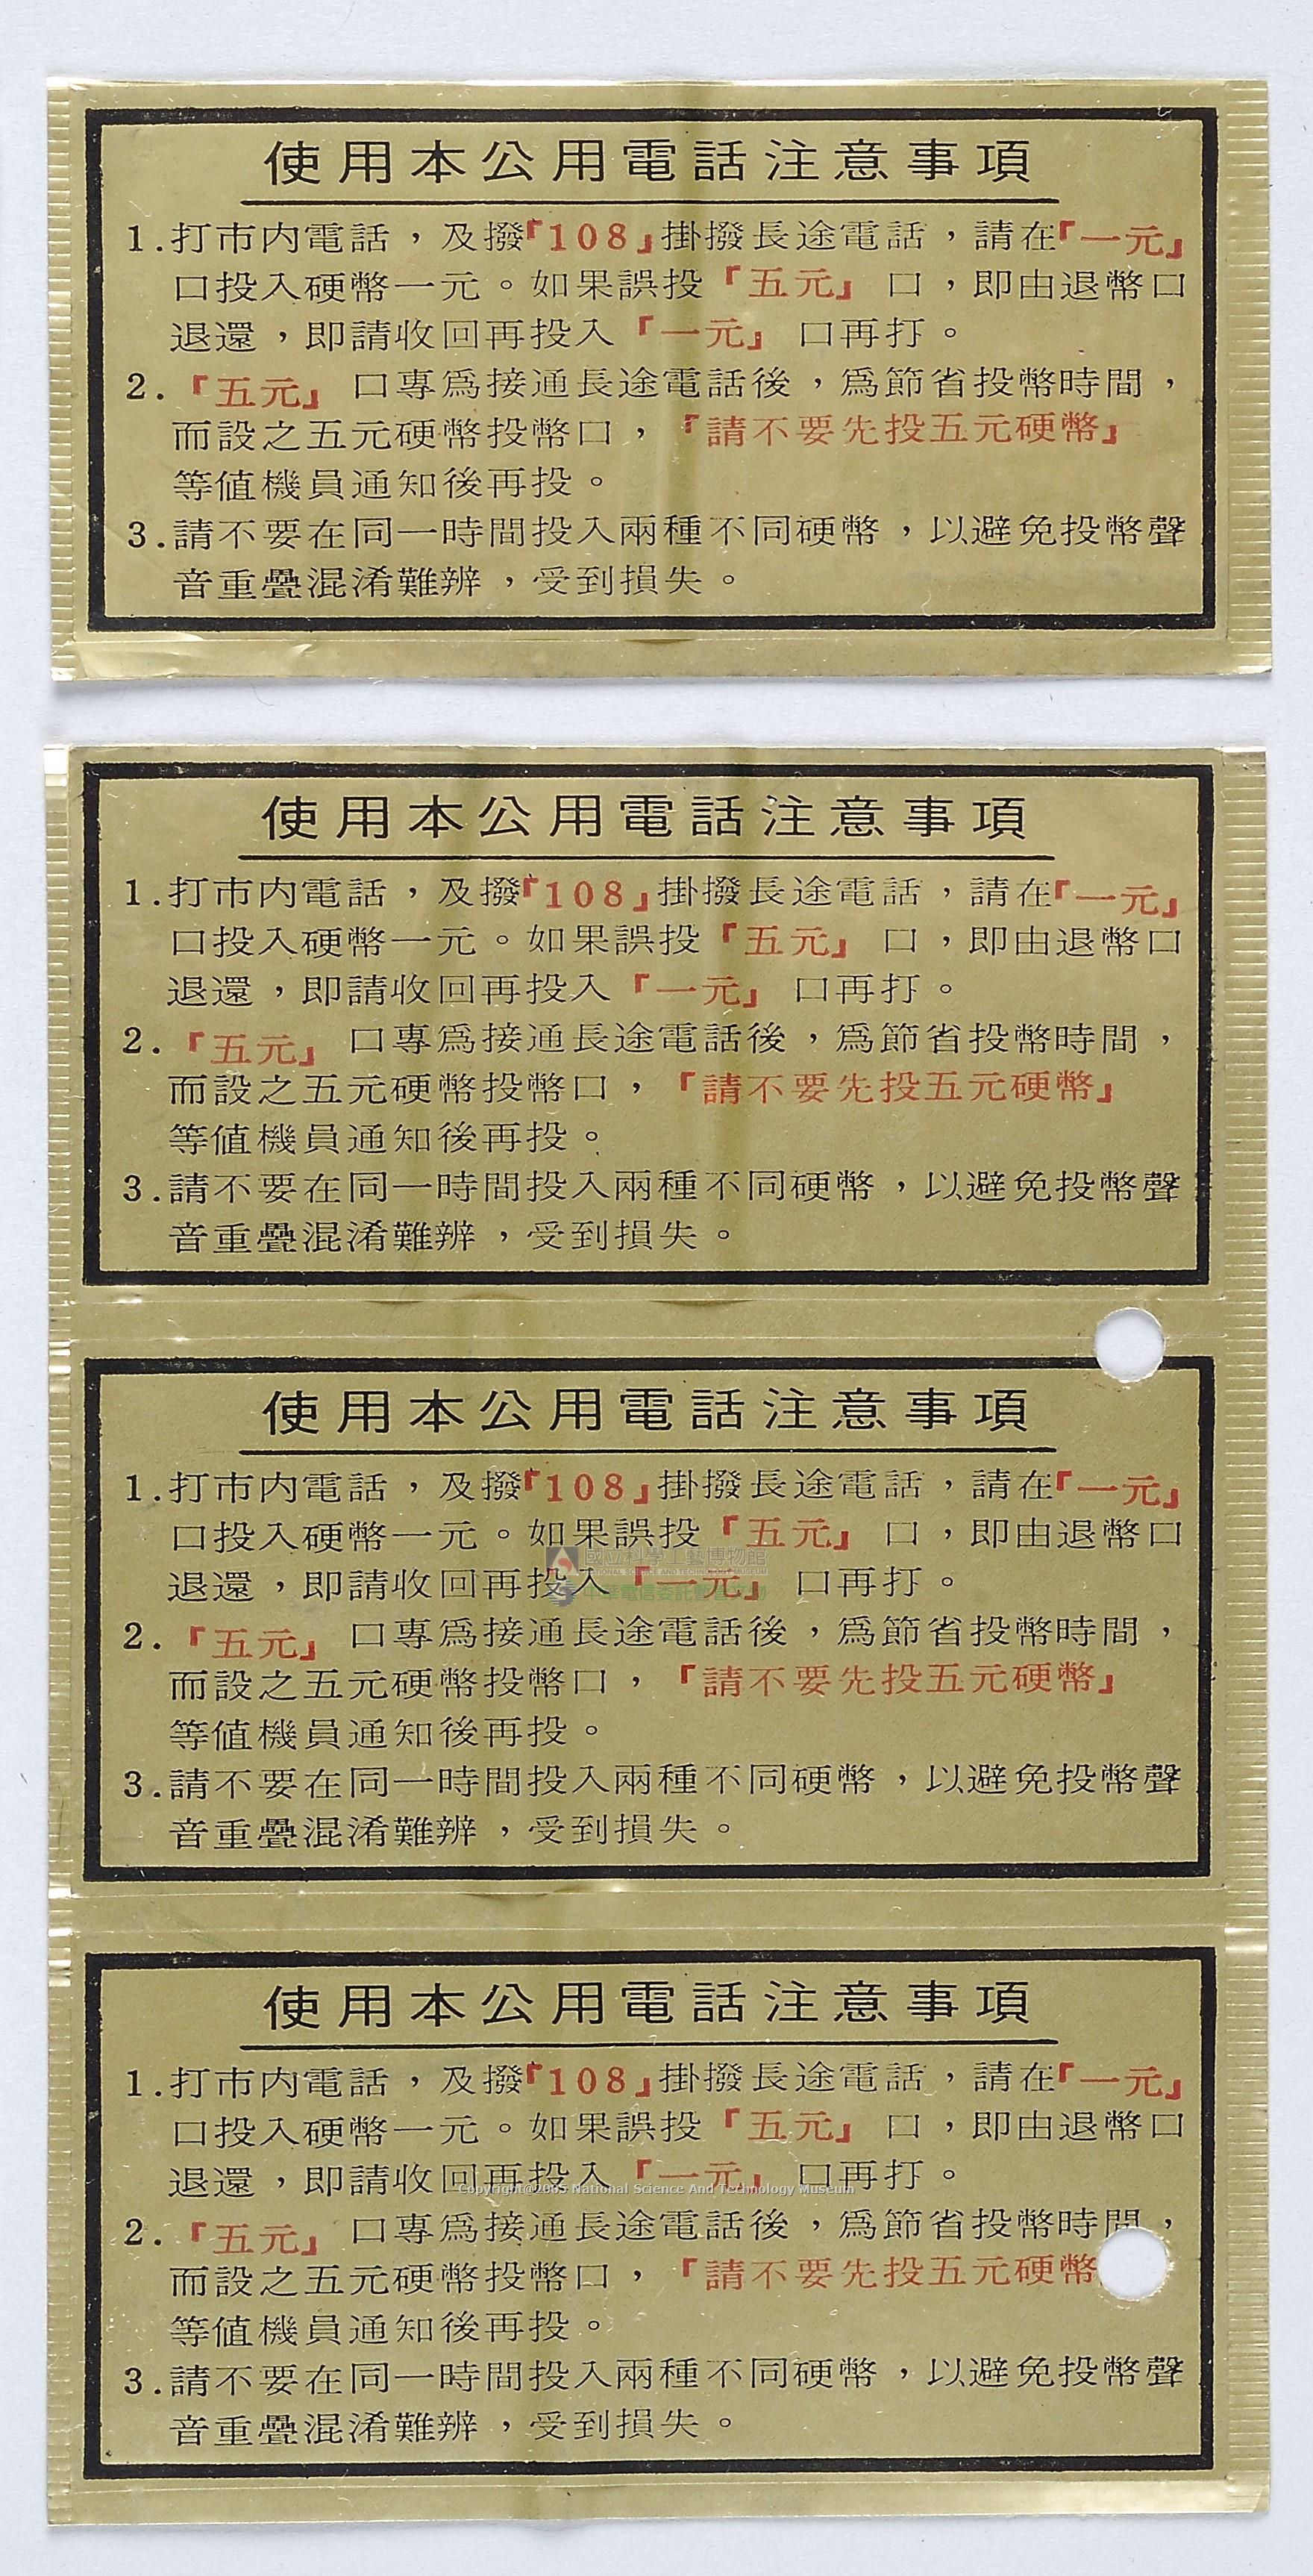 使用本公用電話注意事項
1.打市內電話，及撥『108』掛撥長途電話，請在『一元』
口投入硬幣一元。如果誤投『五元』口，即由退幣口
退還，即請收回再投入『一元』口再打。
2.『五元』口專爲接通長途電話後，爲節省投幣時間，
而設之五元硬幣投幣口，『請不要先投五元硬幣』
等值機員通知後再投。
3.請不要在同一時間投入兩種不同硬幣，以避免投幣聲
音重疊混淆難辨，受到損失。
使用本公用電話注意事項
1.打市內電話，及撥『108』掛撥長途電話，請在『一元』
口投入硬幣一元。如果誤投『五元』口，即由退幣口
退還，即請收回再投入『一元』口再打。
2.『五元』口專爲接通長途電話後，爲節省投幣時間，
而設之五元硬幣投幣口，『請不要先投五元硬幣』
等值機員通知後再投。
3.請不要在同一時間投入兩種不同硬幣，以避免投幣聲
音重疊混淆難辨，受到損失。
使用本公用電話注意事項
1.打市內電話，及撥『108』掛撥長途電話，請在『一元』
口投入硬幣一元。如果誤投『五元』口，即由退幣口
國立科學工藝博物館
NATIONAL SCIENCE AND TECHNOLOGY MUSEUM
退還，即請收回再投入『一元』口再打。
中華電信委託
2.『五元』口專爲接通長途電話後，爲節省投幣時間，
而設之五元硬幣投幣口，『請不要先投五元硬幣』
等值機員通知後再投。
3.請不要在同一時間投入兩種不同硬幣，以避免投幣聲
音重疊混淆難辨，受到損失。
使用本公用電話注意事項
1.打市內電話，及撥『108』掛撥長途電話，請在『一元』
口投入硬幣一元。如果誤投『五元』口，即由退幣口
退還，即請收回再投入『一元』口再打。
Copyright@2005 National Science And Technology Museum
2.『五元』口專爲接通長途電話後，爲節省投幣時間，
而設之五元硬幣投幣口，『請不要先投五元硬幣
等值機員通知後再投。
3.請不要在同一時間投入兩種不同硬幣，以避免投幣聲
音重疊混淆難辨，受到損失。